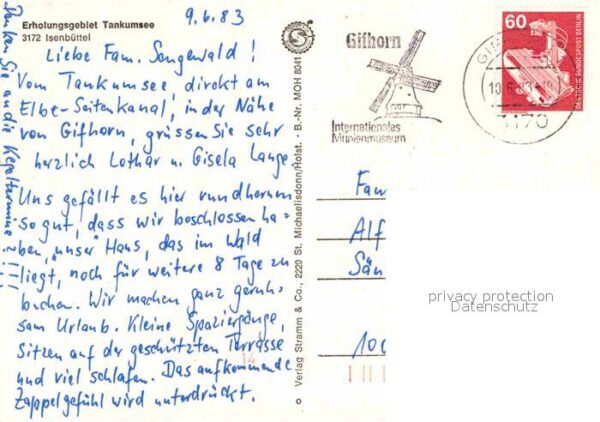 Erholungsgebiet Tankumsee
3172 Isenbüttel
9.6.83
Liebe Fam. Sengewald!
Vom Tankumsee, direkt am
Elbe-Seitenkanal, in der Nähe
von Gifhorn, grüssen Sie sehr
herzlich Lothar u. Gisela Lange.
Uns gefällt es hier rundherum
so gut, dass wir beschlossen ha-
ben, "unser" Haus, das im Wald
liegt, noch für weitere 8 Tage zu
buchen. Wir machen ganz geruh-
sam Urlaub. Kleine Spaziergänge,
Sitzen auf der geschützten Terrasse
und viel schlafen. Das aufkommende
Zappelgefühl wird unterdrückt.
Denken Sie an die Kegeltermine?!!!!
Verlag Stramm & Co., 2220 St. Michaelisdonn/Holst. · B.-Nr. MOH 8041
Gifhorn
Internationales
Mühlenmuseum
60
DEUTSCHE BUNDESPOST BERLIN
3170
Fam
Alf
Sän
100
14
privacy protection
Datenschutz